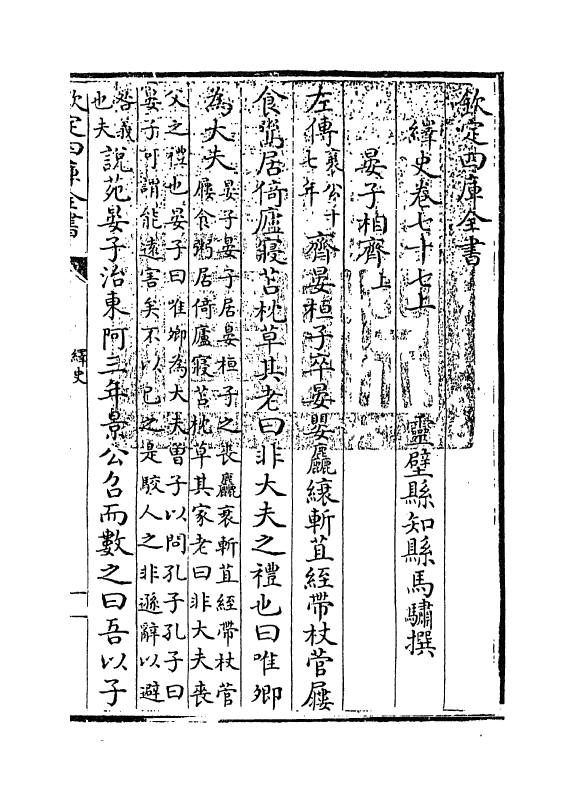 欽定四庫全書
繹史卷七十七上
靈壁縣知縣馬驌撰
晏子相齊上
左傳襄公十七年齊晏桓子卒晏嬰麤縗斬苴絰帶杖菅屨
食鬻居倚廬寢苫枕草其老曰非大夫之禮也曰唯卿
為大夫晏子晏子居晏桓子之喪麤衰斬苴絰帶杖菅
屨食粥居倚廬寢苫枕草其家老曰非大夫喪
父之禮也晏子曰唯卿為大夫曽子以問孔子孔子曰
晏子可謂能逺害矣不以已之是駮人之非遜辭以避
咎義
也夫說苑晏子治東阿三年景公召而數之曰吾以子
欽定四庫全書
繹史
一